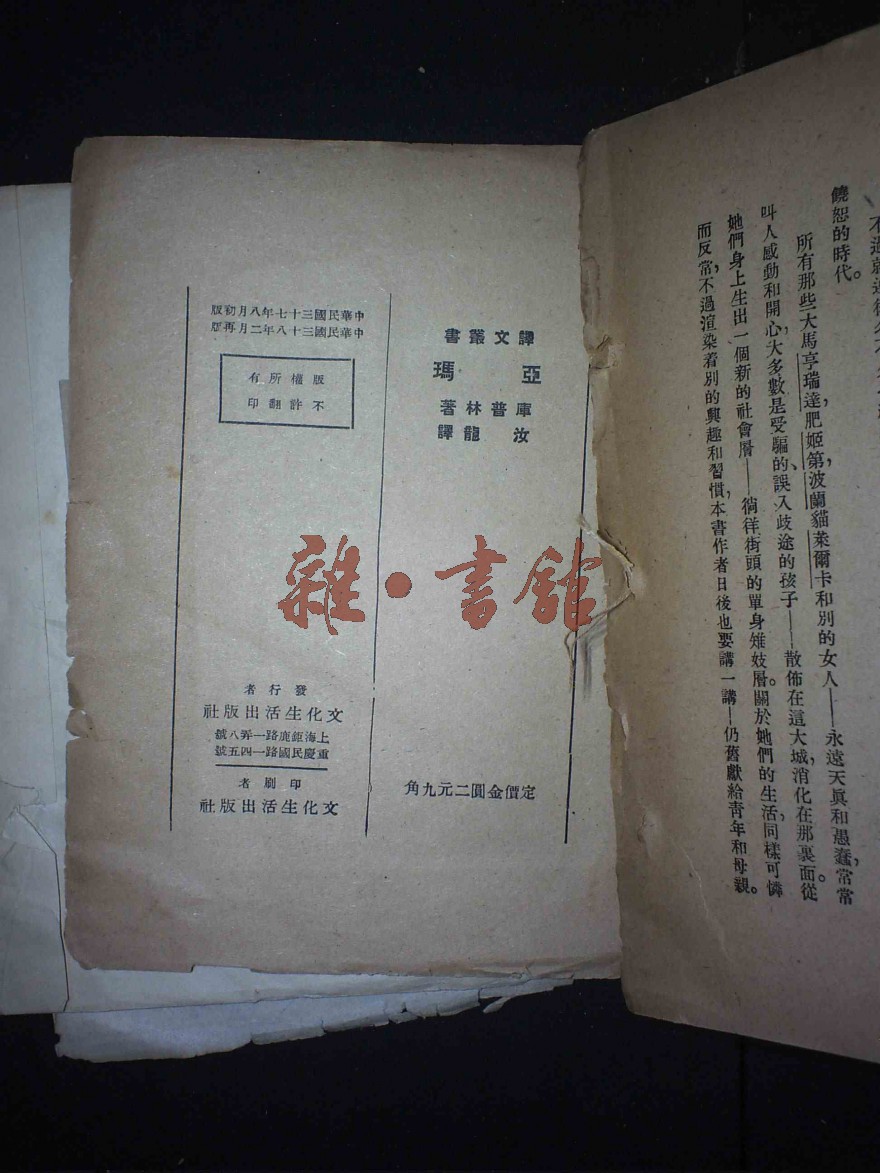 饒恕的時代。
所有那些大馬亨瑞達肥姬第,波蘭貓萊爾卡和別的女人——永遠天眞和愚蠢,常常
叫人感動和開心,大多數是受騙的、誤入歧途的孩子——散佈在這大城,消化在那裏面。從
她們身上生出一個新的社會層——徜徉街頭的單身雉妓層。關於她們的生活,同樣可憐
而反常,不過渲染着別的興趣和習慣,本書作者日後也要講一講——仍舊獻給靑年和母親。
譯文叢書
亞瑪
庫普林著
汝龍譯
定價金圓二元九角
中華民國三十七年八月初版
中華民國三十八年二月再版
版權所有
不許翻印
發行者
文化生活出版社
上海鉅鹿路一弄八號
重慶民國路一四五號
印刷者
文化生活出版社
雜·書館